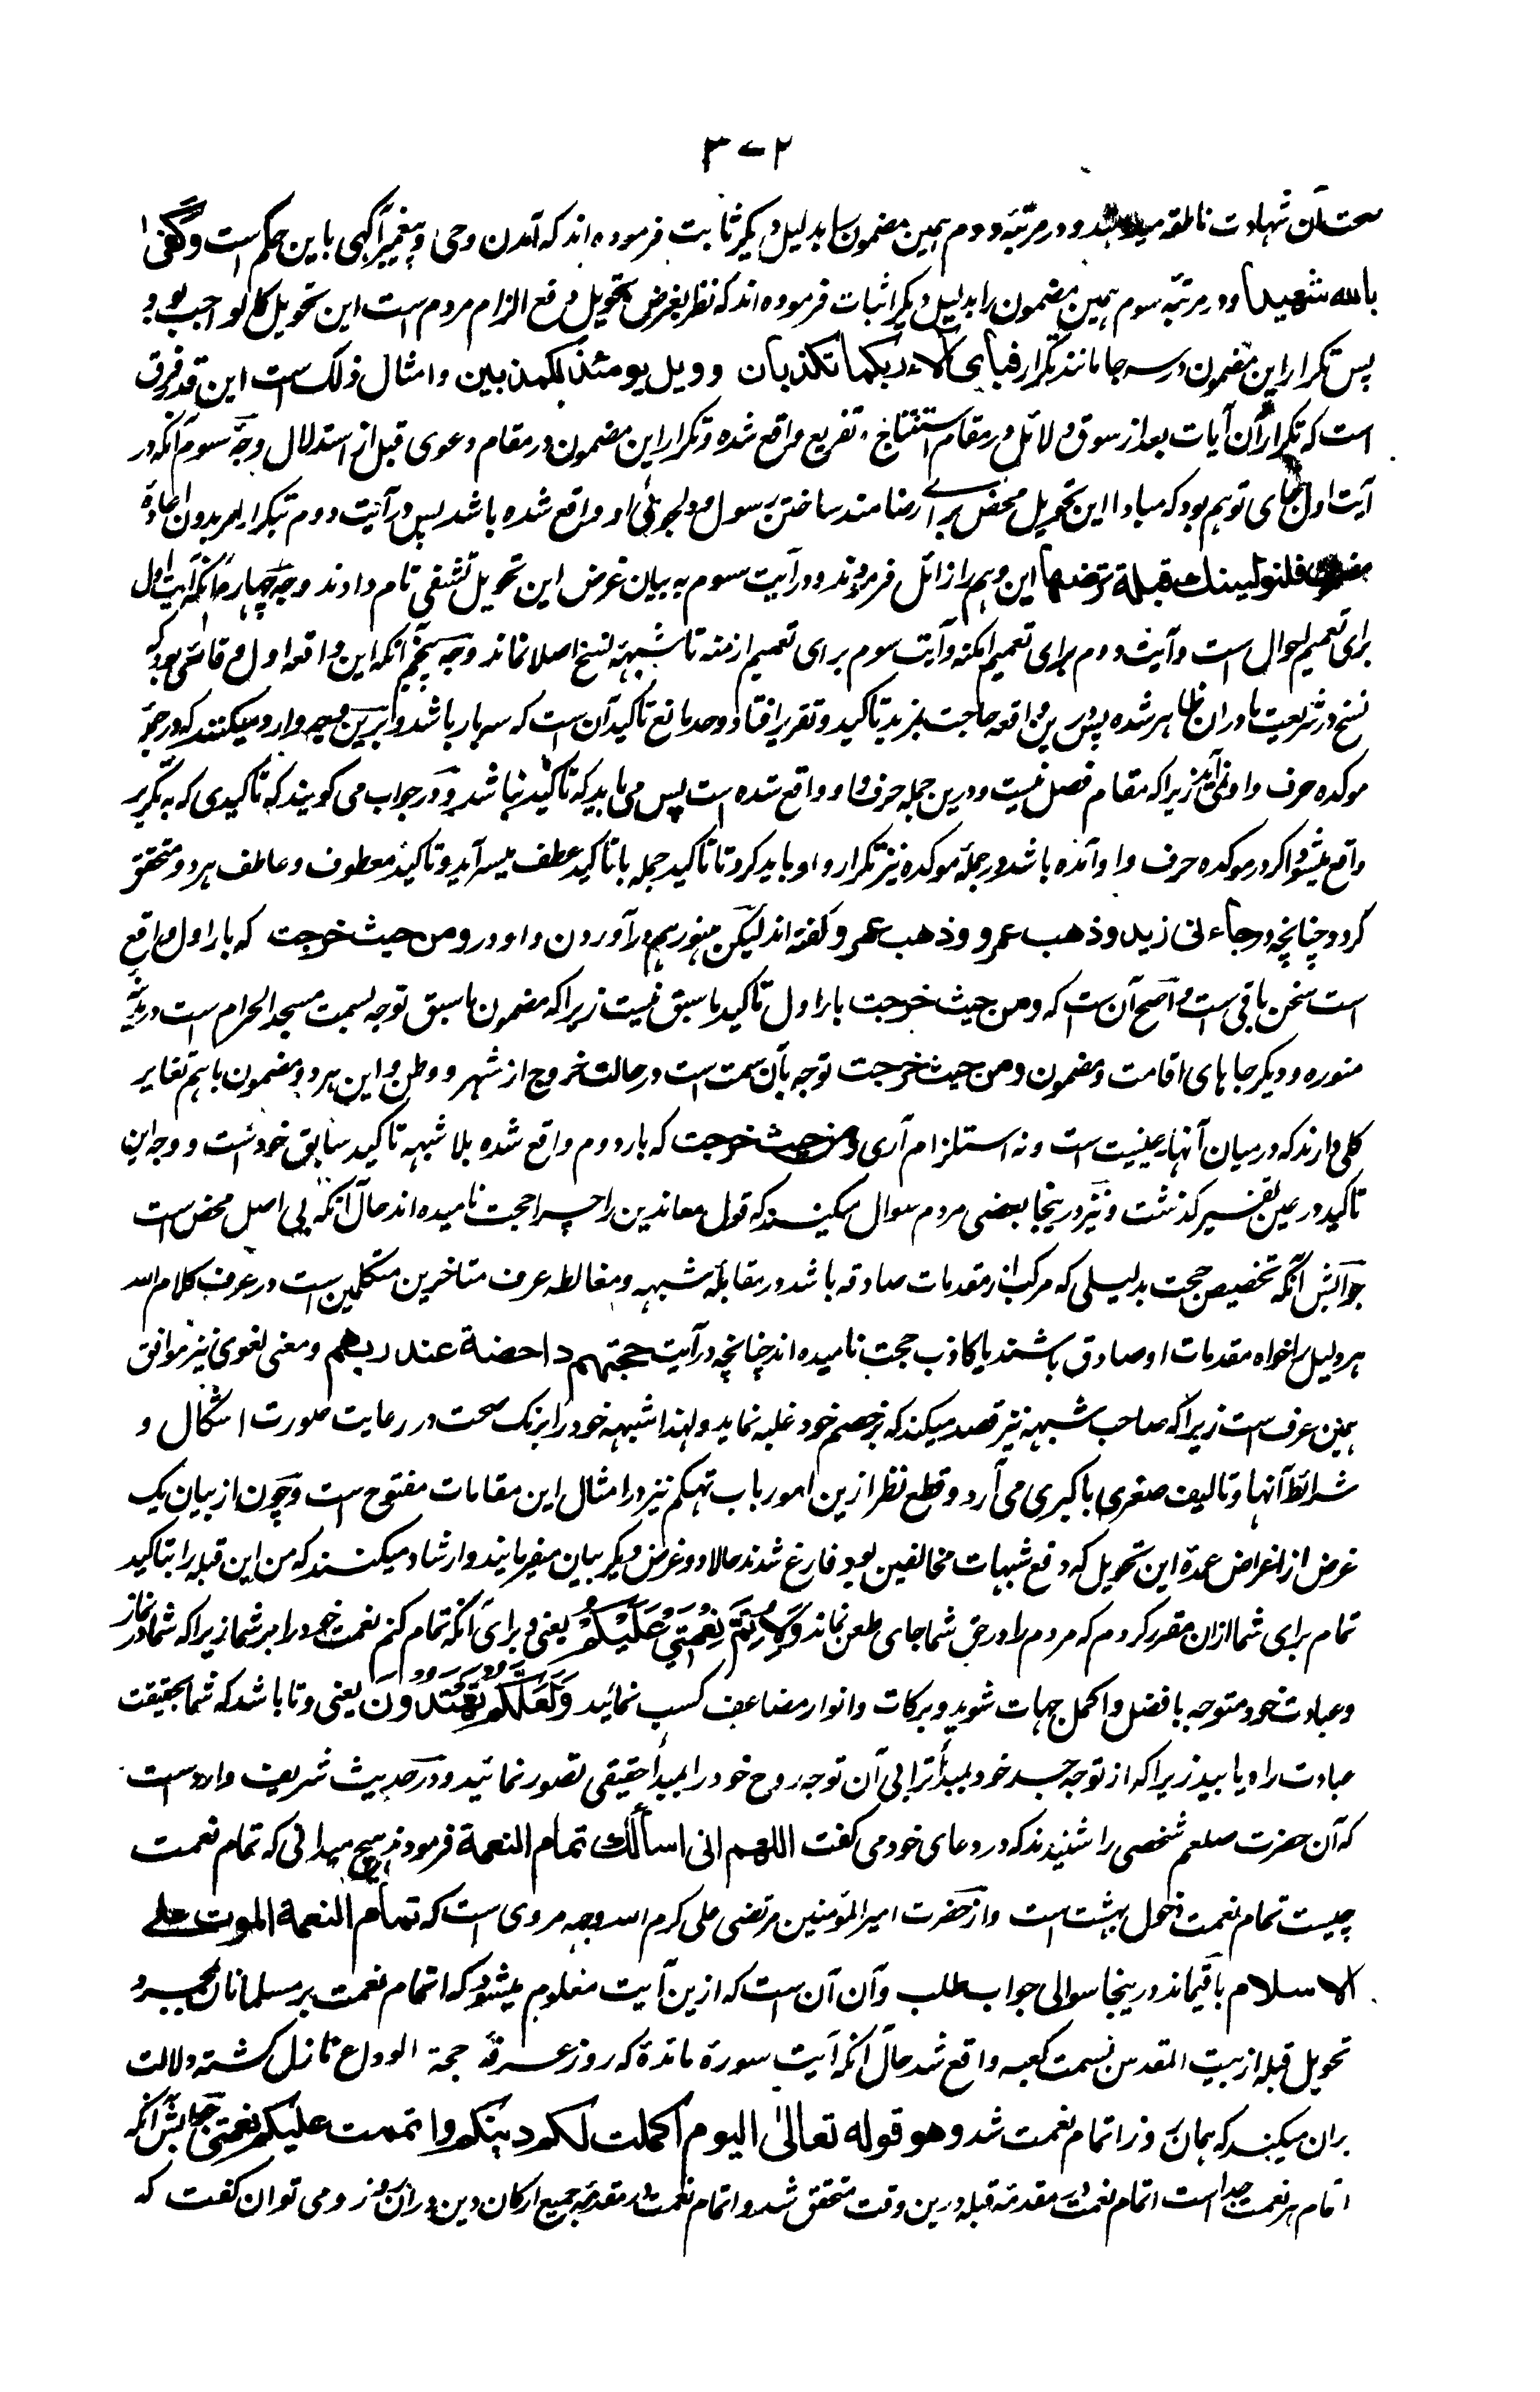 ۳۷۲
صحت آن شهادت ناطقه میدهند و در مرتبهٔ دوم همین مضمون را بدلیل دیگر ثابت فرموده اند که آمدن وحی و پیغمبر آگهی باین حکم است وکفی
بالله شهیدا و در مرتبهٔ سوم همین مضمون را بدلیل دیگر اثبات فرموده اند که نظر بغرض تحویل دفع الزام مردم است این تحویل کالواجب بود
پس تکرار این مضمون در سه جا مانند تکرار فبای الاء ربکما تکذبان و ویل یومئذ للمکذبین و امثال ذلک است این قدر فرق
است که تکرار آن آیات بعد از سوق دلائل در مقام استنتاج و تفریع واقع شده و تکرار این مضمون در مقام دعوی قبل از استدلال وجه سوم آنکه در
آیت اول جای توهم بود که مبادا این تحویل محض برای رضامند ساختن رسول و دلجوئی او واقع شده باشد پس در آیت دوم تبکرار امر بدون اعادهٔ
مضمون فلنولینک قبلة ترضها این وهم را زائل فرمودند و در آیت سوم به بیان غرض این تحویل تشفی تام دادند وجه چهارم آنکه آیت اول
برای تعمیم احوال است و آیت دوم برای تعمیم امکنه و آیت سوم برای تعمیم ازمنه تا شبهه نسخ اصلا نماند وجه پنجم آنکه این واقعه اول وقائعی بود که
نسخ در شریعت ما دران ظاهر شده پس درین واقعه حاجت بمزید تاکید و تقریر افتاد و حد مانع تاکید آن است که سه بار باشد و برین وجه وارد میکنند که در جملهٔ
موکده حرف واو نمی آید زیرا که مقام فصل نیست و درین جمله حرف واو واقع شده است پس می باید که تاکید نباشد و در جواب می گویند که تاکیدی که به تکریر
واقع میشود اگر در موکده حرف واو آمده باشد در جملهٔ موکده نیز تکرار واو باید کرد تا تاکید جمله با تاکید عطف میسر آید و تاکید معطوف و عاطف هر دو متحقق
گردد چنانچه در جاءنی زید وذهب عمرو وذهب عمرو گفته اند لیکن هنوز هم در آوردن واو در ومن حیث خرجت که بار اول واقع
است سخن باقی است و اصح آن ست که ومن حیث خرجت بار اول تاکید ما سبق نیست زیرا که مضمون ما سبق توجه بسمت مسجد الحرام است در مدینه
منوره و دیگر جاهای اقامت و مضمون ومن حیث خرجت توجه بآن سمت است در حالت خروج از شهر و وطن و این هر دو مضمون باهم تغایر
کلی دارند که در میان آنها نه عینیت است و نه استلزام آری ومن حیث خرجت که بار دوم واقع شده بلا شبهه تاکید سابق خود ست و وجه این
تاکید در عین تفسیر گذشت و نیز در ینجا بعضی مردم سوال میکنند که قول معاندین را چرا حجت نامیده اند حال آنکه بی اصل محض است
جوابش آنکه تخصیص حجت بدلیلی که مرکب از مقدمات صادقه باشد در مقابلهٔ شبهه و مغالطه عرف متاخرین متکلمین است در عرف کلام الله
هر دلیل را خواه مقدمات او صادق باشند یا کاذب حجت نامیده اند چنانچه در آیت حجتهم داحضة عند ربهم و معنی لغوی نیز موافق
همین عرف است زیرا که صاحب شبهه نیز قصد میکند که بر خصم خود غلبه نماید و لهذا شبهه خود را برنگ صحت در رعایت صورت اشکال و
شرائط آنها و تالیف صغری با کبری می آرد و قطع نظر ازین امور باب تهکم نیز در امثال این مقامات مفتوح است و چون از بیان یک
غرض از اغراض عمدهٔ این تحویل که دفع شبهات مخالفین بود فارغ شدند حالا دو غرض دیگر بیان میفرمایند و ارشاد میکنند که من این قبله را بتاکید
تمام برای شما ازان مقرر کردم که مردم را در حق شما جای طعن نماند وَلِاُتِمَّ نِعْمَتِی عَلَیْکُمْ یعنی و برای آنکه تمام کنم نعمت خود را بر شما زیرا که شما در نماز
و عبادت خود متوجه بافضل و اکمل جهات شوید و برکات و انوار مضاعف کسب نمائید وَلَعَلَّکُمْ تَهْتَدُونَ یعنی و تا باشد که شما بحقیقت
عبادت راه یابید زیرا که از توجه جسد خود بمبدأ ترابی آن توجه روح خود را بمبدأ حقیقی تصور نمائید و در حدیث شریف وارد است
که آن حضرت صلعم شخصی را شنیدند که در دعای خود می گفت اللهم انی اسألک تمام النعمة فرمودند هیچ میدانی که تمام نعمت
چیست تمام نعمت دخول بهشت است و از حضرت امیر المؤمنین مرتضی علی کرم الله وجهه مروی است که تمام النعمة الموت علی
الاسلام باقیماند در ینجا سوالی جواب طلب و آن آن است که ازین آیت معلوم میشود که اتمام نعمت بر مسلمانان بمجرد
تحویل قبله از بیت المقدس بسمت کعبه واقع شد حال آنکه آیت سورهٔ مائدة که روز عرفه حجة الوداع نازل گشته دلالت
بران میکند که همان روز اتمام نعمت شد وهو قوله تعالی الیوم اکملت لکم دینکم واتممت علیکم نعمتی جوابش آنکه
اتمام هر نعمت جداست اتمام نعمت در مقدمهٔ قبله درین وقت متحقق شد و اتمام نعمت در مقدمهٔ جمیع ارکان دین دران روز و می توان گفت که